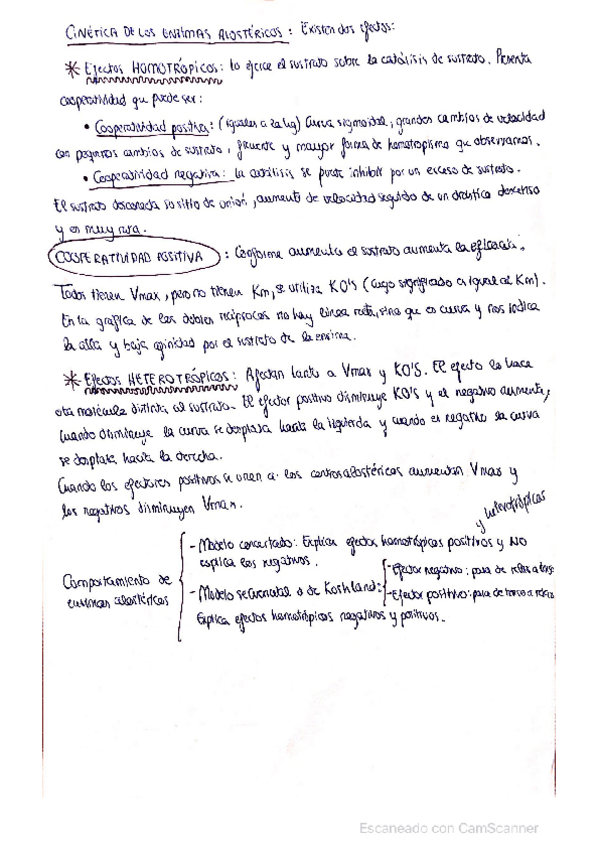 CINÉTICA DE LOS ENZIMAS ALOSTÉRICOS: Existen dos efectos:
* Efectos HOMOTRÓPICOS: lo ejerce el sustrato sobre la catálisis de sustrato. Presenta
cooperatividad que puede ser:
• Cooperatividad positiva: (iguales a la Hg) Curva sigmoidal, grandes cambios de velocidad
con pequeños cambios de sustrato, frecuente y mayor forma de homotropismo que observamos.
• Cooperatividad negativa: la catálisis se puede inhibir por un exceso de sustrato.
El sustrato desconecta su sitio de unión, aumento de velocidad seguido de un drástico descenso
y es muy rara.
COOPERATIVIDAD POSITIVA: Conforme aumenta el sustrato aumenta la eficacia.
Todos tienen Vmax, pero no tienen Km, se utiliza K0'5 (cuyo significado es igual al Km).
En la gráfica de los dobles recíprocos no hay línea recta, sino que es curva y nos indica
la alta y baja afinidad por el sustrato de la enzima.
* Efectos HETEROTRÓPICOS: Afectan tanto a Vmax y K0'5. El efecto lo hace
otra molécula distinta al sustrato. El efector positivo disminuye K0'5 y el negativo aumenta,
Cuando disminuye la curva se desplaza hacia la izquierda y cuando es negativo la curva
se desplaza hacia la derecha.
Cuando los efectores positivos se unen a los centros alostéricos aumentan Vmax y
los negativos disminuyen Vmax.
y heterotrópicos
Comportamiento de
enzimas alostéricos
- Modelo concertado: Explica efectos homotrópicos positivos y NO
explica los negativos.
- Modelo secuencial o de Koshland:
- Efector negativo: pasa de relax a tenso
- Efector positivo: pasa de tenso a relax
Explica efectos homotrópicos negativos y positivos.
Escaneado con CamScanner